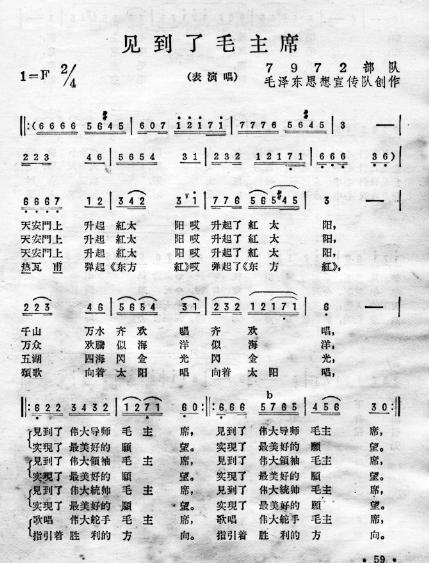 见到了毛主席
1=F 2/4 （表演唱） 7972部队
毛泽东思想宣传队创作
‖:(6666 5645 | 607 12171 | 7776 5645 | 3 — |
223 46 | 5645 31 | 232 1217 | 666 36) |
6667 12 | 342 31 | 776 5645 | 3 — |
天安門上 升起 紅太 阳哎 升起了 紅 太 阳，
天安門上 升起 紅太 阳哎 升起了 紅 太 阳，
天安門上 升起 紅太 阳哎 升起了 紅 太 阳，
热瓦甫 弹起《东方 紅》哎 弹起了《东 方 紅》，
223 46 | 5645 31 | 232 12171 | 6 — |
千山 万水 齐欢 唱 齐 欢 唱，
万众 欢騰 似海 洋 似 海 洋，
五湖 四海 閃金 光 閃 金 光，
頌歌 向着 太阳 唱 向着 太 阳 唱，
‖:622 3432 | 1271 60:‖:666 5765 | 456 30:‖
見到了 伟大导师 毛 主 席， 見到了 伟大导师 毛主 席，
实現了 最美好的 願 望。 实現了 最美好的 願 望。
見到了 伟大領袖 毛 主 席， 見到了 伟大領袖 毛主 席，
实現了 最美好的 願 望。 实現了 最美好的 願 望。
見到了 伟大統帅 毛 主 席， 見到了 伟大統帅 毛主 席，
实現了 最美好的 願 望。 实現了 最美好的 願 望。
歌唱 伟大舵手 毛 主 席， 歌唱 伟大舵手 毛主 席，
指引着 胜利的 方 向。 指引着 胜利的 方 向。
• 59 •